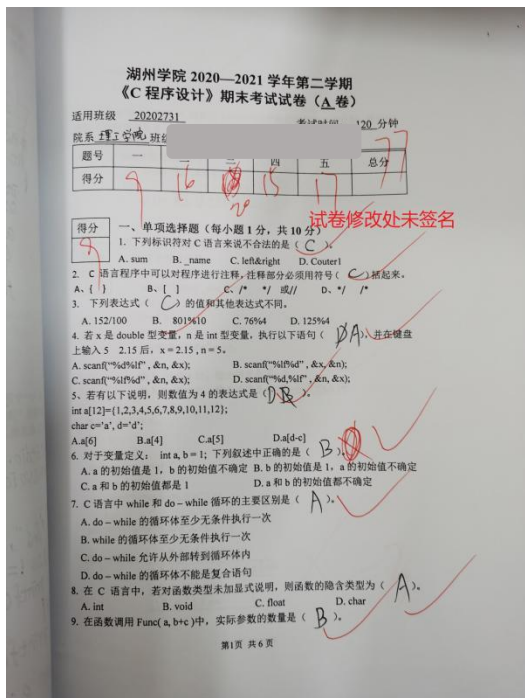 湖州学院 2020—2021 学年第二学期
《C 程序设计》期末考试试卷（A 卷）
适用班级 20202731 考试时间 120 分钟
院系 理工学院 班级
题号 一 二 三 四 五 总分
得分 9 16 20 15 17 77
试卷修改处未签名
得分 9
一、单项选择题（每小题 1 分，共 10 分）
1. 下列标识符对 C 语言来说不合法的是（ C ）。
A. sum B. _name C. left&right D. Couter1
2. C 语言程序中可以对程序进行注释，注释部分必须用符号（ C ）括起来。
A、{ } B、[ ] C、/* */ 或// D、*/ /*
3. 下列表达式（ C ）的值和其他表达式不同。
A. 152/100 B. 801%10 C. 76%4 D. 125%4
4. 若 x 是 double 型变量，n 是 int 型变量，执行以下语句（ A ），并在键盘
上输入 5 2.15 后，x = 2.15 , n = 5。
A. scanf("%d%lf" , &n, &x); B. scanf("%lf%d" , &x, &n);
C. scanf("%lf%d" , &n, &x); D. scanf("%d,%lf" , &n, &x);
5、若有以下说明，则数值为 4 的表达式是（ D B ）。
int a[12]={1,2,3,4,5,6,7,8,9,10,11,12};
char c='a', d='d';
A.a[6] B.a[4] C.a[5] D.a[d-c]
6. 对于变量定义： int a, b = 1; 下列叙述中正确的是（ B ）。
A. a 的初始值是 1，b 的初始值不确定 B. b 的初始值是 1，a 的初始值不确定
C. a 和 b 的初始值都是 1 D. a 和 b 的初始值都不确定
7. C 语言中 while 和 do – while 循环的主要区别是（ A ）。
A. do – while 的循环体至少无条件执行一次
B. while 的循环体至少无条件执行一次
C. do – while 允许从外部转到循环体内
D. do – while 的循环体不能是复合语句
8. 在 C 语言中，若对函数类型未加显式说明，则函数的隐含类型为（ A ）。
A. int B. void C. float D. char
9. 在函数调用 Func( a, b+c )中，实际参数的数量是（ B ）。
第1页 共 6 页